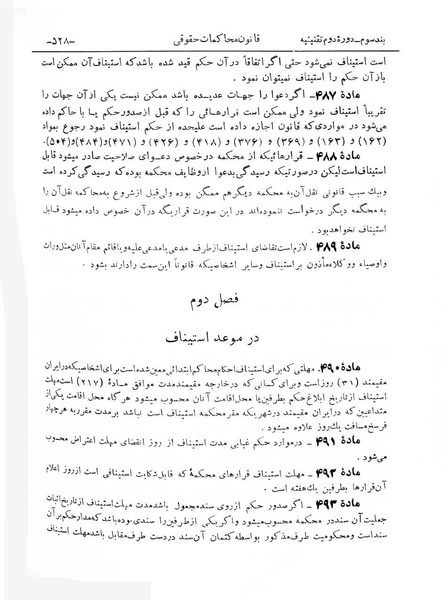 بند سوم ـ دورهٔ دوم تقنینیه قانون محاکمات حقوقی -۵۲۸-
است استیناف نمی‌شود حتی اگر اتفاقاً در آن حکم قید شده باشد که استیناف آن ممکن است
باز آن حکم را استیناف نمیتوان نمود.
مادهٔ ۴۸۷ ـ اگر دعوا را جهات عدیده باشد ممکن نیست یکی از آن جهات را
تقریباً استیناف نمود ولی ممکن است قرارهائی را که قبل از صدور حکم یا با حکم داده
می‌شود در مواردی که قانون اجازه داده است علیحده از حکم استیناف نمود رجوع بمواد
(۱۶۲) و (۱۶۳) و (۳۶۹) و (۳۷۶) و (۴۱۸) و (۴۲۶) و (۴۷۱) و (۴۸۴) و (۵۰۴).
مادهٔ ۴۸۸ ـ قرارهائیکه از محکمه در خصوص دعوای صلاحیت صادر میشود قابل
استیناف است لیکن در صورتیکه رسیدگی بدعوا از وظایف محکمه بوده که رسیدگی کرده است
و بیک سبب قانونی نقل آن به محکمه دیگر هم ممکن بوده ولی قبل از شروع به محاکمه نقل آن را
به محکمه دیگر درخواست ننموده‌اند در این صورت قراریکه در آن خصوص داده میشود قابل
استیناف نخواهد بود.
مادهٔ ۴۸۹ ـ لازم است تقاضای استیناف از طرف مدعی یا مدعی علیه و یا قائم مقام آنان مثل وراث
و اوصیاء و وکلاء مأذون بر استیناف و سایر اشخاصیکه قانوناً این سمت را دارند بشود.
فصل دوم
در موعد استیناف
مادهٔ ۴۹۰ ـ مهلتی که برای استیناف احکام محاکم ابتدائی معین شده است برای اشخاصیکه در ایران
مقیمند (۳۱) روز است و برای کسانی که در خارجه مقیمند مدت موافق مادهٔ (۲۱۷) است مهلت
استیناف از تاریخ ابلاغ حکم بطرفین یا محل اقامت آنان محسوب میشود هر گاه محل اقامت یکی از
متداعیین که در ایران مقیمند در شهریکه مقر محکمه استیناف است نباشد برمدت مقرر به هر چهار
فرسخ مسافت یک روز علاوه میشود.
مادهٔ ۴۹۱ ـ در موارد حکم غیابی مدت استیناف از روز انقضای مهلت اعتراض محسوب
می‌شود.
مادهٔ ۴۹۲ ـ مهلت استیناف قرارهای محکمهٔ که قابل شکایت استینافی است از روز اعلام
آن قرارها بطرفین یک هفته است.
مادهٔ ۴۹۳ ـ اگر صدور حکم از روی سند مجعول باشد مدت مهلت استیناف از تاریخ اثبات
جعلیت آن سند در محکمه محسوب میشود و اگر یکی از طرفین را سندی بوده باشد که مدار حکم بر آن
سند است و محکومیت طرف مذکور بواسطه کتمان آن سند در دست طرف مقابل باشد مهلت استیناف